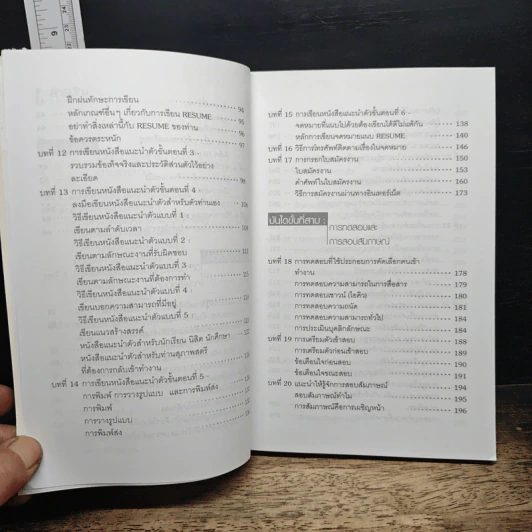 ฝึกฝนทักษะการเขียน 94
หลักเกณฑ์อื่นๆ เกี่ยวกับการเขียน RESUME 95
อย่าทำสิ่งเหล่านี้กับ RESUME ของท่าน 96
ข้อควรตระหนัก 97
บทที่ 12 การเขียนหนังสือแนะนำตัวขั้นตอนที่ 3 :
รวบรวมข้อเท็จจริงและประวัติส่วนตัวไว้อย่าง
ละเอียด 98
บทที่ 13 การเขียนหนังสือแนะนำตัวขั้นตอนที่ 4 :
ลงมือเขียนหนังสือแนะนำตัวสำหรับตัวท่านเอง
วิธีเขียนหนังสือแนะนำตัวแบบที่ 1 :
เขียนตามลำดับเวลา
วิธีเขียนหนังสือแนะนำตัวแบบที่ 2 :
เขียนตามลักษณะงานที่รับผิดชอบ
วิธีเขียนหนังสือแนะนำตัวแบบที่ 3 :
เขียนตามลักษณะงานที่ต้องการทำ
วิธีเขียนหนังสือแนะนำตัวแบบที่ 4 :
เขียนบอกความสามารถที่มีอยู่
วิธีเขียนหนังสือแนะนำตัวแบบที่ 5 :
เขียนแนวสร้างสรรค์
หนังสือแนะนำตัวสำหรับนักเรียน นิสิต นักศึกษา
หนังสือแนะนำตัวสำหรับท่านสุภาพสตรี
ที่ต้องการกลับเข้าทำงาน
บทที่ 14 การเขียนหนังสือแนะนำตัวขั้นตอนที่ 5 :
การพิมพ์ การวางรูปแบบ และการพิมพ์ส่ง
การพิมพ์
การวางรูปแบบ
การพิมพ์ส่ง
บทที่ 15 การเขียนหนังสือแนะนำตัวขั้นตอนที่ 6 :
จดหมายที่แนบไปด้วยต้องเขียนให้ดีไม่แพ้กัน 138
หลักการเขียนจดหมายแนบ RESUME 140
บทที่ 16 วิธีการโทรศัพท์ติดตามเรื่องในจดหมาย 146
บทที่ 17 การกรอกใบสมัครงาน 150
ใบสมัครงาน 153
คำศัพท์ในใบสมัครงาน 160
วิธีการสมัครงานผ่านทางอินเทอร์เน็ต 173
บันไดขั้นที่สาม :
การทดสอบและ
การสอบสัมภาษณ์
บทที่ 18 การทดสอบที่ใช้ประกอบการคัดเลือกคนเข้า
ทำงาน 178
การทดสอบความสามารถในการสื่อสาร 179
การทดสอบเชาวน์ (ไอคิว) 180
การทดสอบความถนัด 181
การทดสอบความสามารถทั่วไป 184
การประเมินบุคลิกลักษณะ 184
บทที่ 19 การเตรียมตัวเข้าสอบ 188
การเตรียมตัวก่อนเข้าสอบ 189
ข้อเตือนใจก่อนสอบ 190
ข้อเตือนใจขณะสอบ 191
บทที่ 20 แนะนำให้รู้จักการสอบสัมภาษณ์ 194
สอบสัมภาษณ์ทำไม 195
การสัมภาษณ์คือการเผชิญหน้า 196